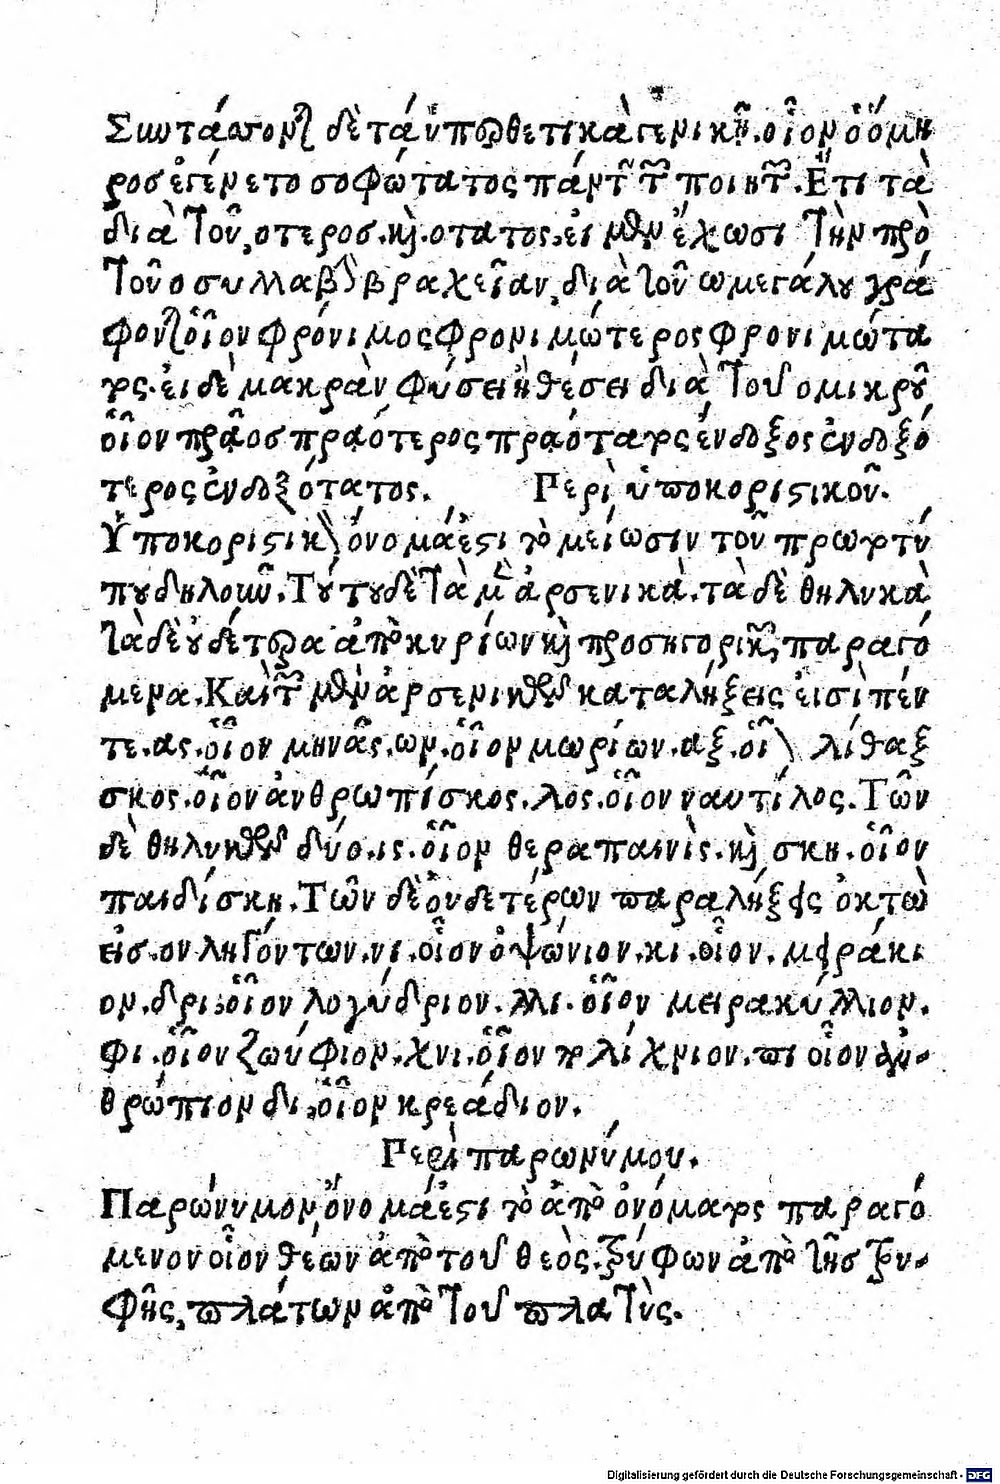 Συντάσσονται δὲ τὰ ὑπερθετικὰ γενικῇ. οἷον ὁ ὅμη
ρος ἐγένετο σοφώτατος πάντων τῶν ποιητῶν. Ἔτι τὰ
διὰ τοῦ, οτερος. καὶ. οτατος, εἰ μὲν ἔχωσι τὴν πρὸ
τοῦ ο συλλαβὴν βραχεῖαν, διὰ τοῦ ω μεγάλου γρά
φονται οἷον φρόνιμος φρονιμώτερος φρονιμώτα
τος. εἰ δὲ μακρὰν φύσει ἢ θέσει διὰ τοῦ ο μικροῦ
οἷον πρᾶος πραότερος πραότατος ἔνδοξος ἐνδοξό
τερος ἐνδοξότατος. Περὶ ὑποκοριστικοῦ.
Ὑποκοριστικὸν ὄνομά ἐστι τὸ μείωσιν τοῦ πρωτοτύ
που δηλοῦν. Τούτου δὲ τὰ μὲν ἀρσενικὰ. τὰ δὲ θηλυκὰ
τὰ δὲ οὐδέτερα ἀπὸ κυρίων καὶ προσηγορικῶν παραγό
μενα. Καὶ τῶν μὲν ἀρσενικῶν καταλήξεις εἰσὶ πέν
τε. ας. οἷον μηνᾶς. ων. οἷον μωρίων. αξ. οἷον λίθαξ
σκος. οἷον ἀνθρωπίσκος. λος. οἷον ναυτίλος. Τῶν
δὲ θηλυκῶν δύο. ις. οἷον θεραπαινὶς. καὶ σκη. οἷον
παιδίσκη. Τῶν δὲ ὀυδετέρων παραλήξεις ὀκτὼ
εἰσ. ον ληγόντων. νι. οἷον ὀψώνιον. κι. οἷον. μειράκι
ον. δρι, οἷον λογύδριον. λλι. οἷον μειρακύλλιον.
φι. οἷον ζωύφιον. χνι. οἷον πολίχνιον. πι οἷον ἀν-
θρώπιον δι, οἷον κρεάδιον.
Περὶ παρωνύμου.
Παρώνυμον ὄνομά ἐστι τὸ ἀπὸ ὀνόματος παραγό
μενον οἷον θέων ἀπὸ τοῦ θεὸς. ξύφων ἀπὸ τῆς ξυ-
φῆς, πλάτων ἀπὸ τοῦ πλατὺς.
Digitalisierung gefördert durch die Deutsche Forschungsgemeinschaft - DFG